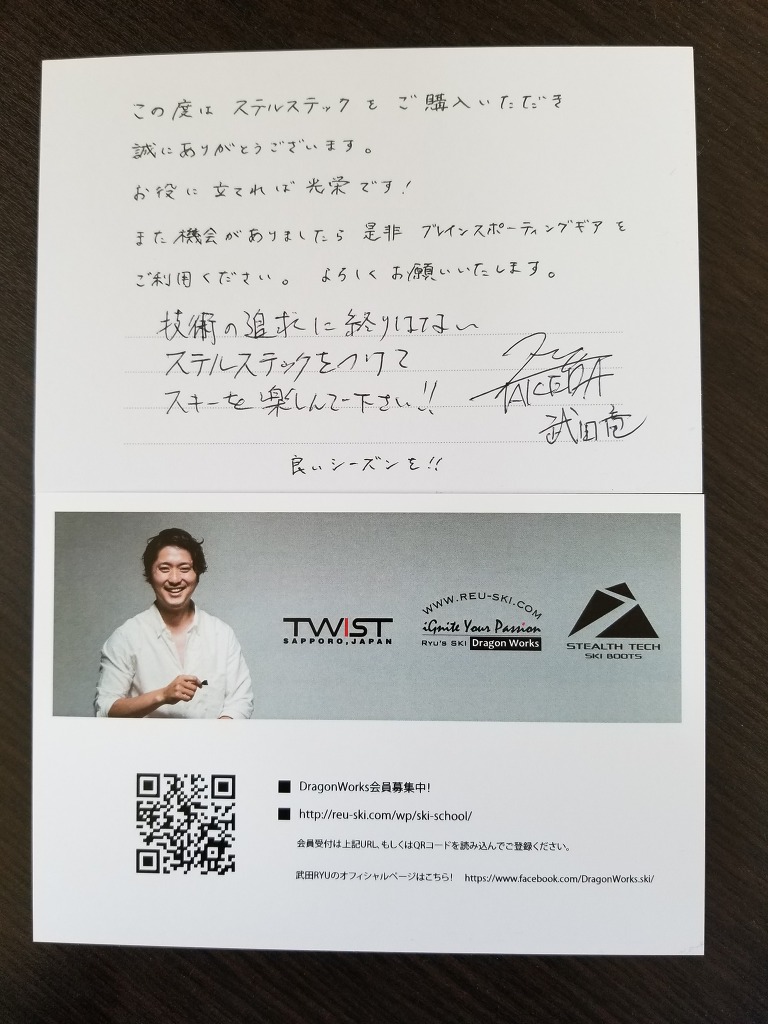 この度は ステルステックを ご購入いただき
誠にありがとうございます。
お役に立てれば光栄です!
また機会がありましたら 是非 ブレインスポーティングギアを
ご利用ください。 よろしくお願いいたします。
技術の追求に終りはない
ステルステックをつけて
スキーを楽しんで下さい!!
Ryu
TAKEDA
武田竜
良いシーズンを!!
TWIST
SAPPORO,JAPAN
WWW.REU-SKI.COM
iGnite Your Passion
RYU's SKI Dragon Works
STEALTH TECH
SKI BOOTS
■ DragonWorks会員募集中!
■ http://reu-ski.com/wp/ski-school/
会員受付は上記URL、もしくはQRコードを読み込んでご登録ください。
武田RYUのオフィシャルページはこちら! https://www.facebook.com/DragonWorks.ski/